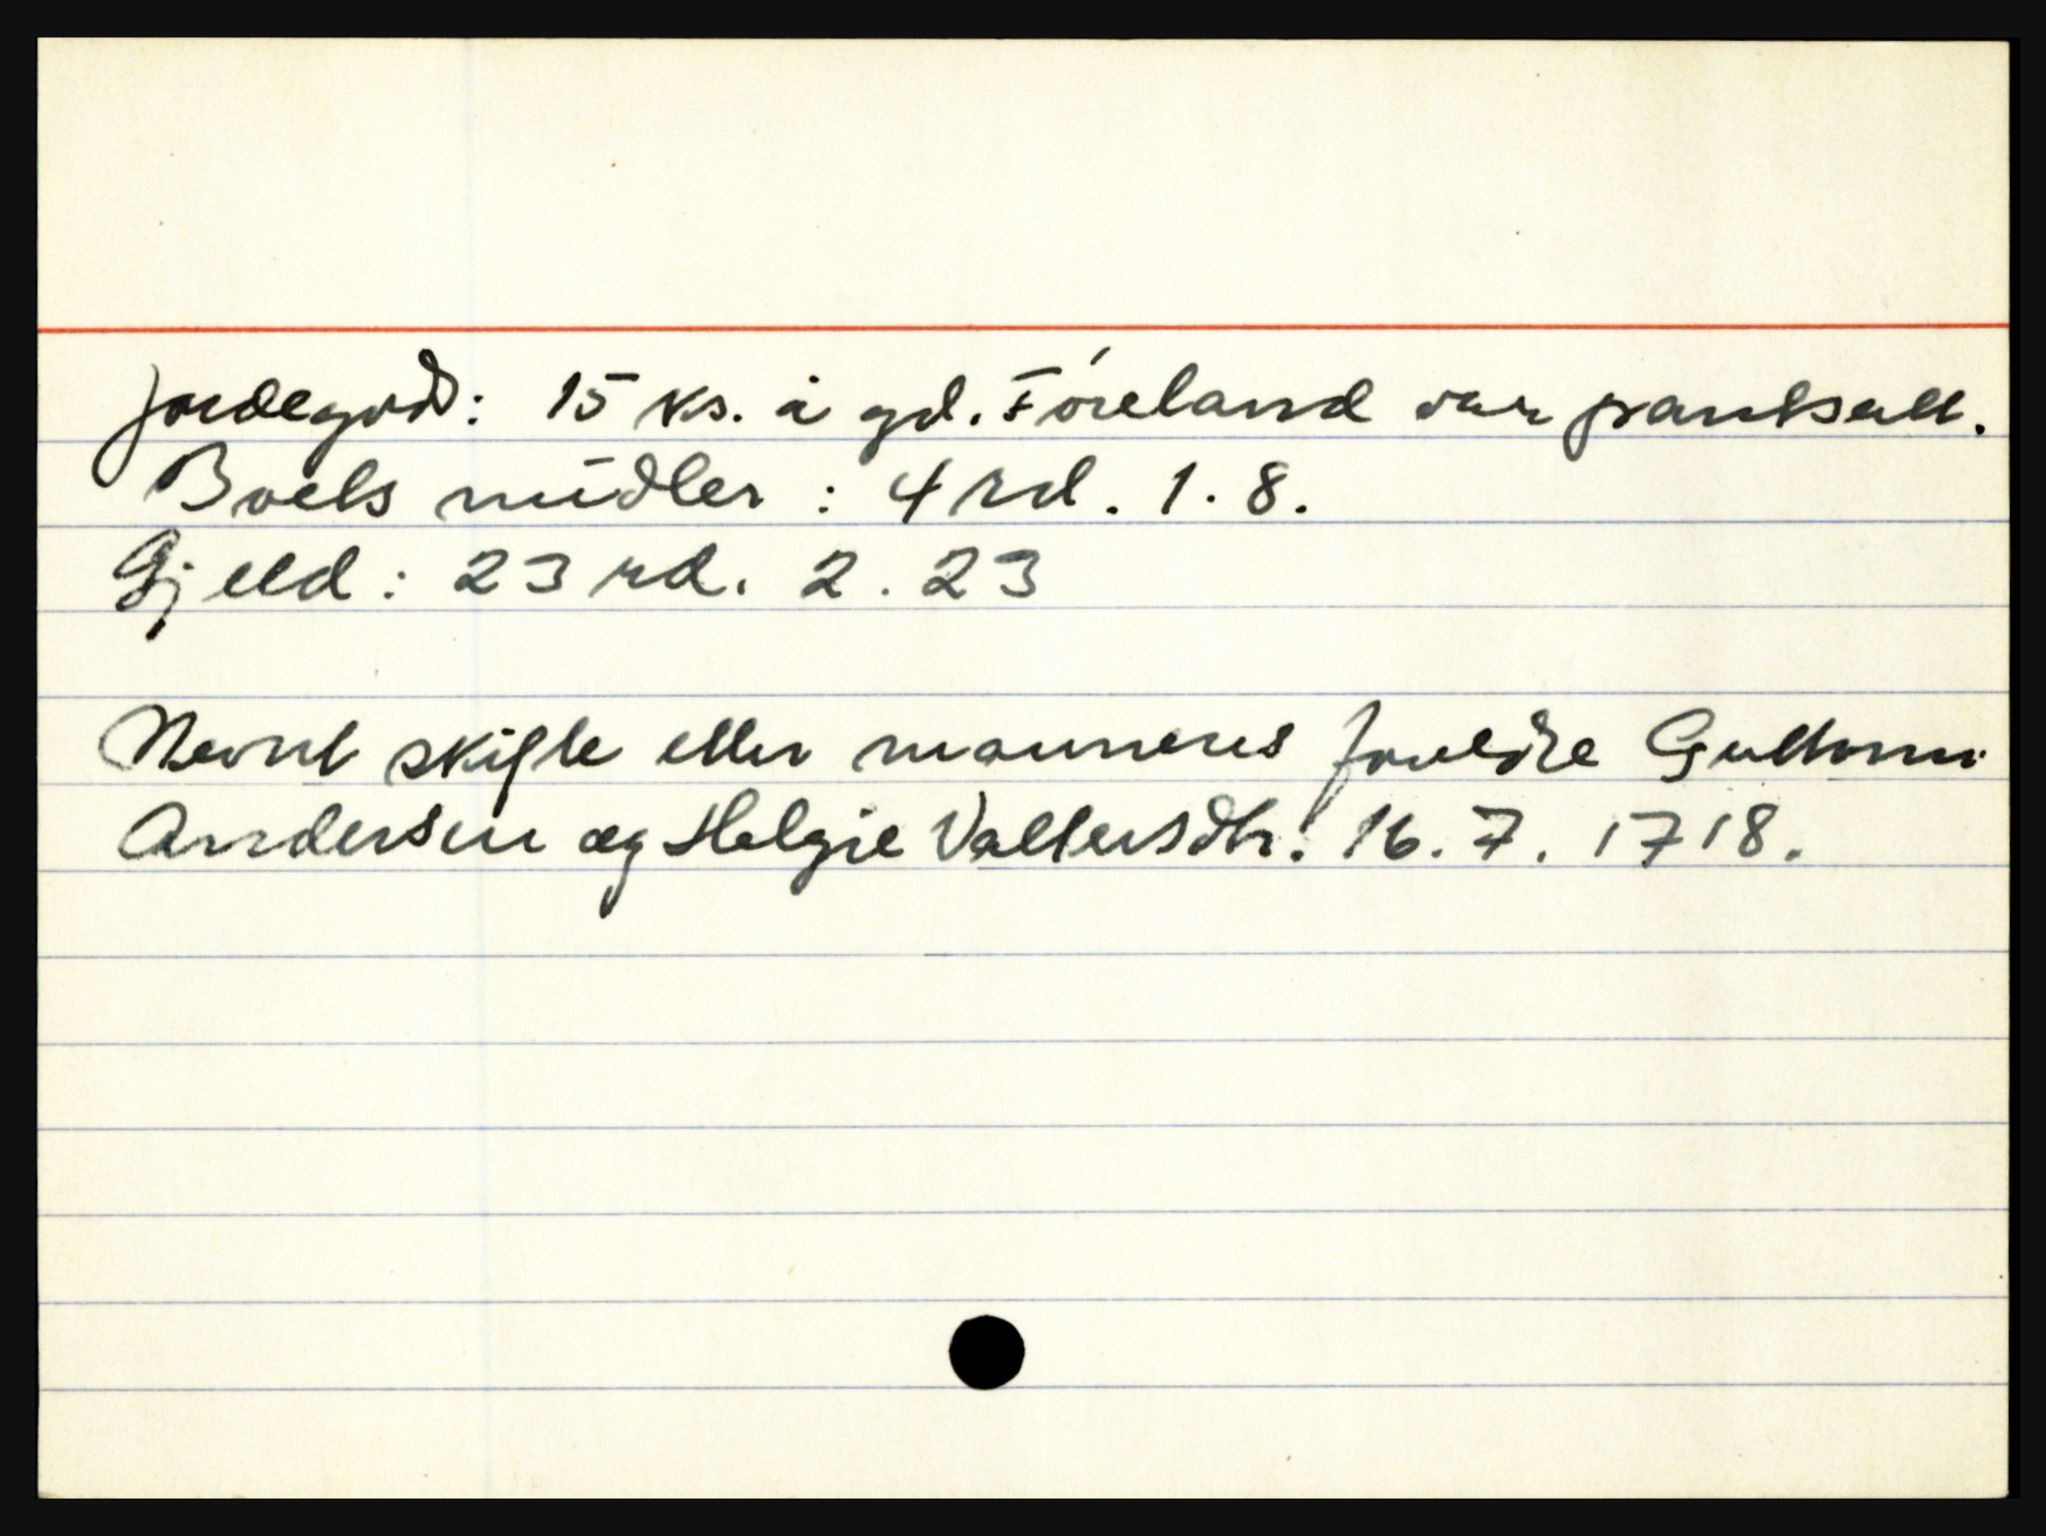 Jordegods: 15 ks. i gd. Fóreland var pantsatt.
Boets midler: 4 rd. 1. 8.
Gjeld: 23 rd. 2. 23
Nevnt skifte etter mannens foreldre Guttorm
Andersen og Helgie Valtersdtr. 16. 7. 1718.